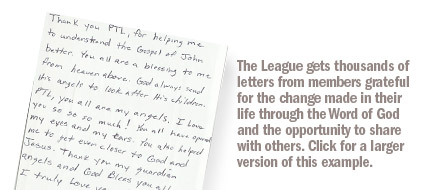 Thank you PTL, for helping me
to understand the Gospel of John
better. You all are a blessing to me
from heaven above. God always send
His angels to look after His children.
PTL, you all are my angels. I love
you so so so much! You all have opened
my eyes and my ears. You also helped
me to get even closer to God and
Jesus. Thank you my guardian
angels and God Bless you all
I truly love
The League gets thousands of
letters from members grateful
for the change made in their
life through the Word of God
and the opportunity to share
with others. Click for a larger
version of this example.